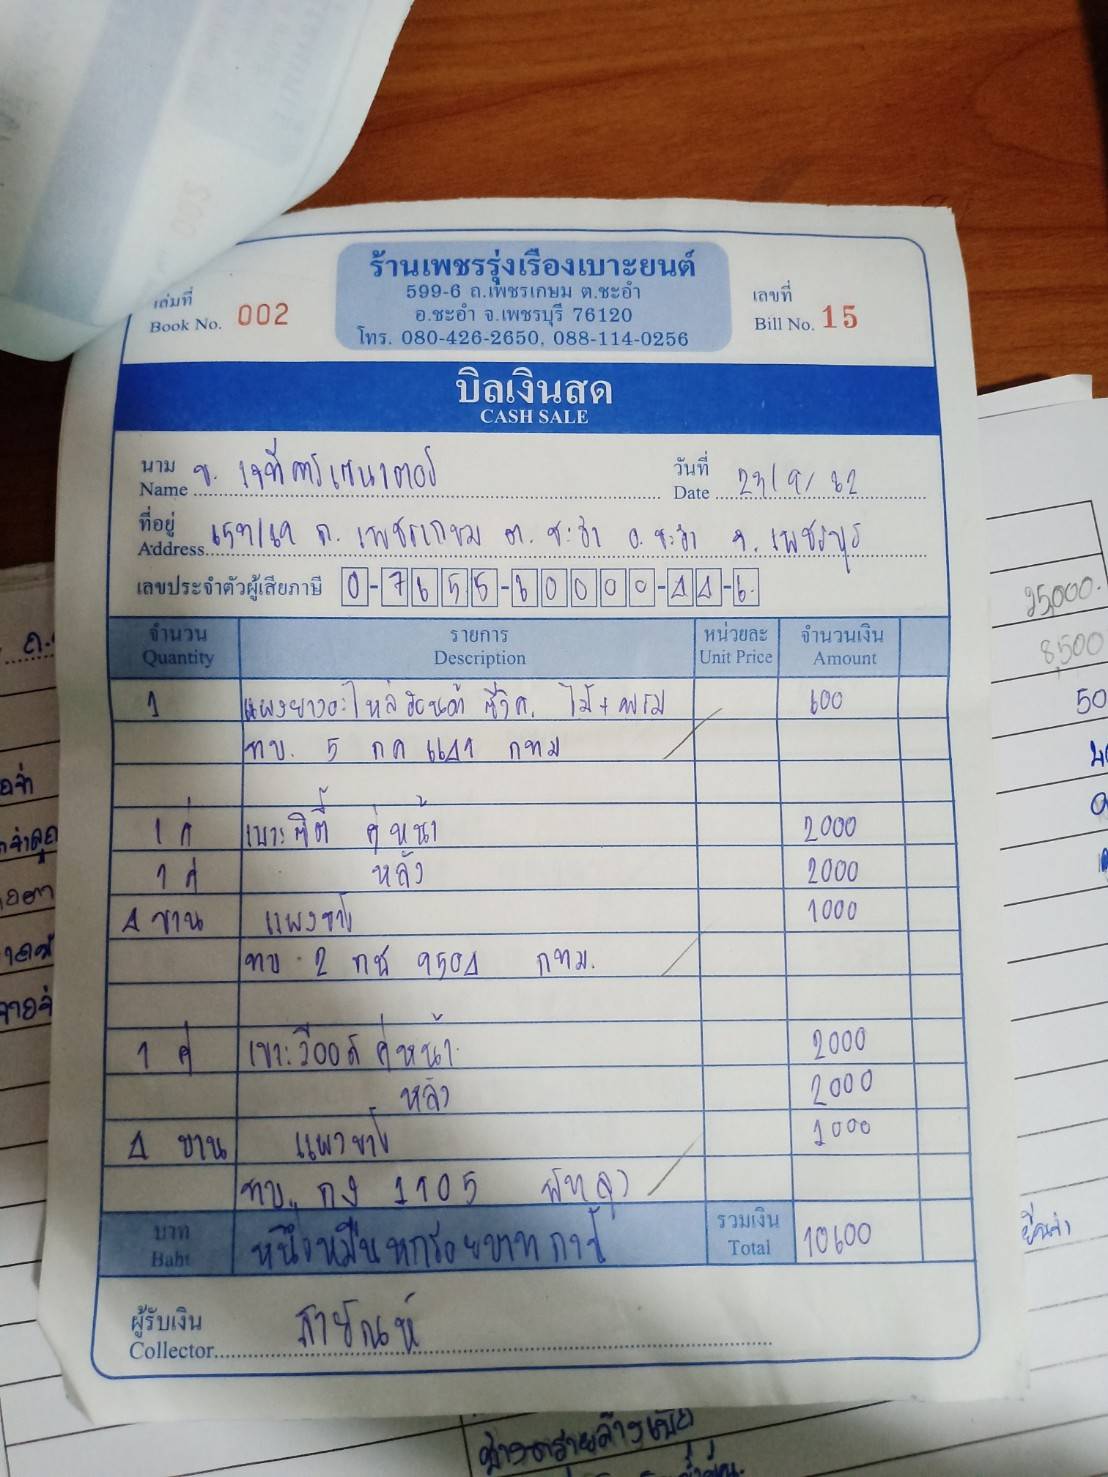 ร้านเพชรรุ่งเรืองเบาะยนต์
599-6 ถ.เพชรเกษม ต.ชะอำ
อ.ชะอำ จ.เพชรบุรี 76120
โทร. 080-426-2650, 088-114-0256
เล่มที่
Book No. 002
เลขที่
Bill No. 15
บิลเงินสด
CASH SALE
นาม
Name
วันที่
Date 23/9/62
ที่อยู่
Address ถ. เพชรเกษม ต. ชะอำ อ. ชะอำ จ. เพชรบุรี
เลขประจำตัวผู้เสียภาษี 0-7655-60000-44-6
จำนวน รายการ หน่วยละ จำนวนเงิน
Quantity Description Unit Price Amount
1 แผงยางอะไหล่ฮอนด้า ซีวิค. ไม้+พรม 600
ทบ. 5 กค 6641 กทม
1 คู่ เบาะซิตี้ คู่หน้า 2000
1 คู่ หลัง 2000
4 บาน แผงข้าง 1000
ทบ. 2 กช 9504 กทม.
1 คู่ เบาะวีออส คู่หน้า 2000
หลัง 2000
4 บาน แผงข้าง 1000
ทบ. กง 1105 พัทลุง
บาท หนึ่งหมื่นหกร้อยบาทถ้วน รวมเงิน 10600
Baht Total
ผู้รับเงิน
Collector
25,000.
8,500
50